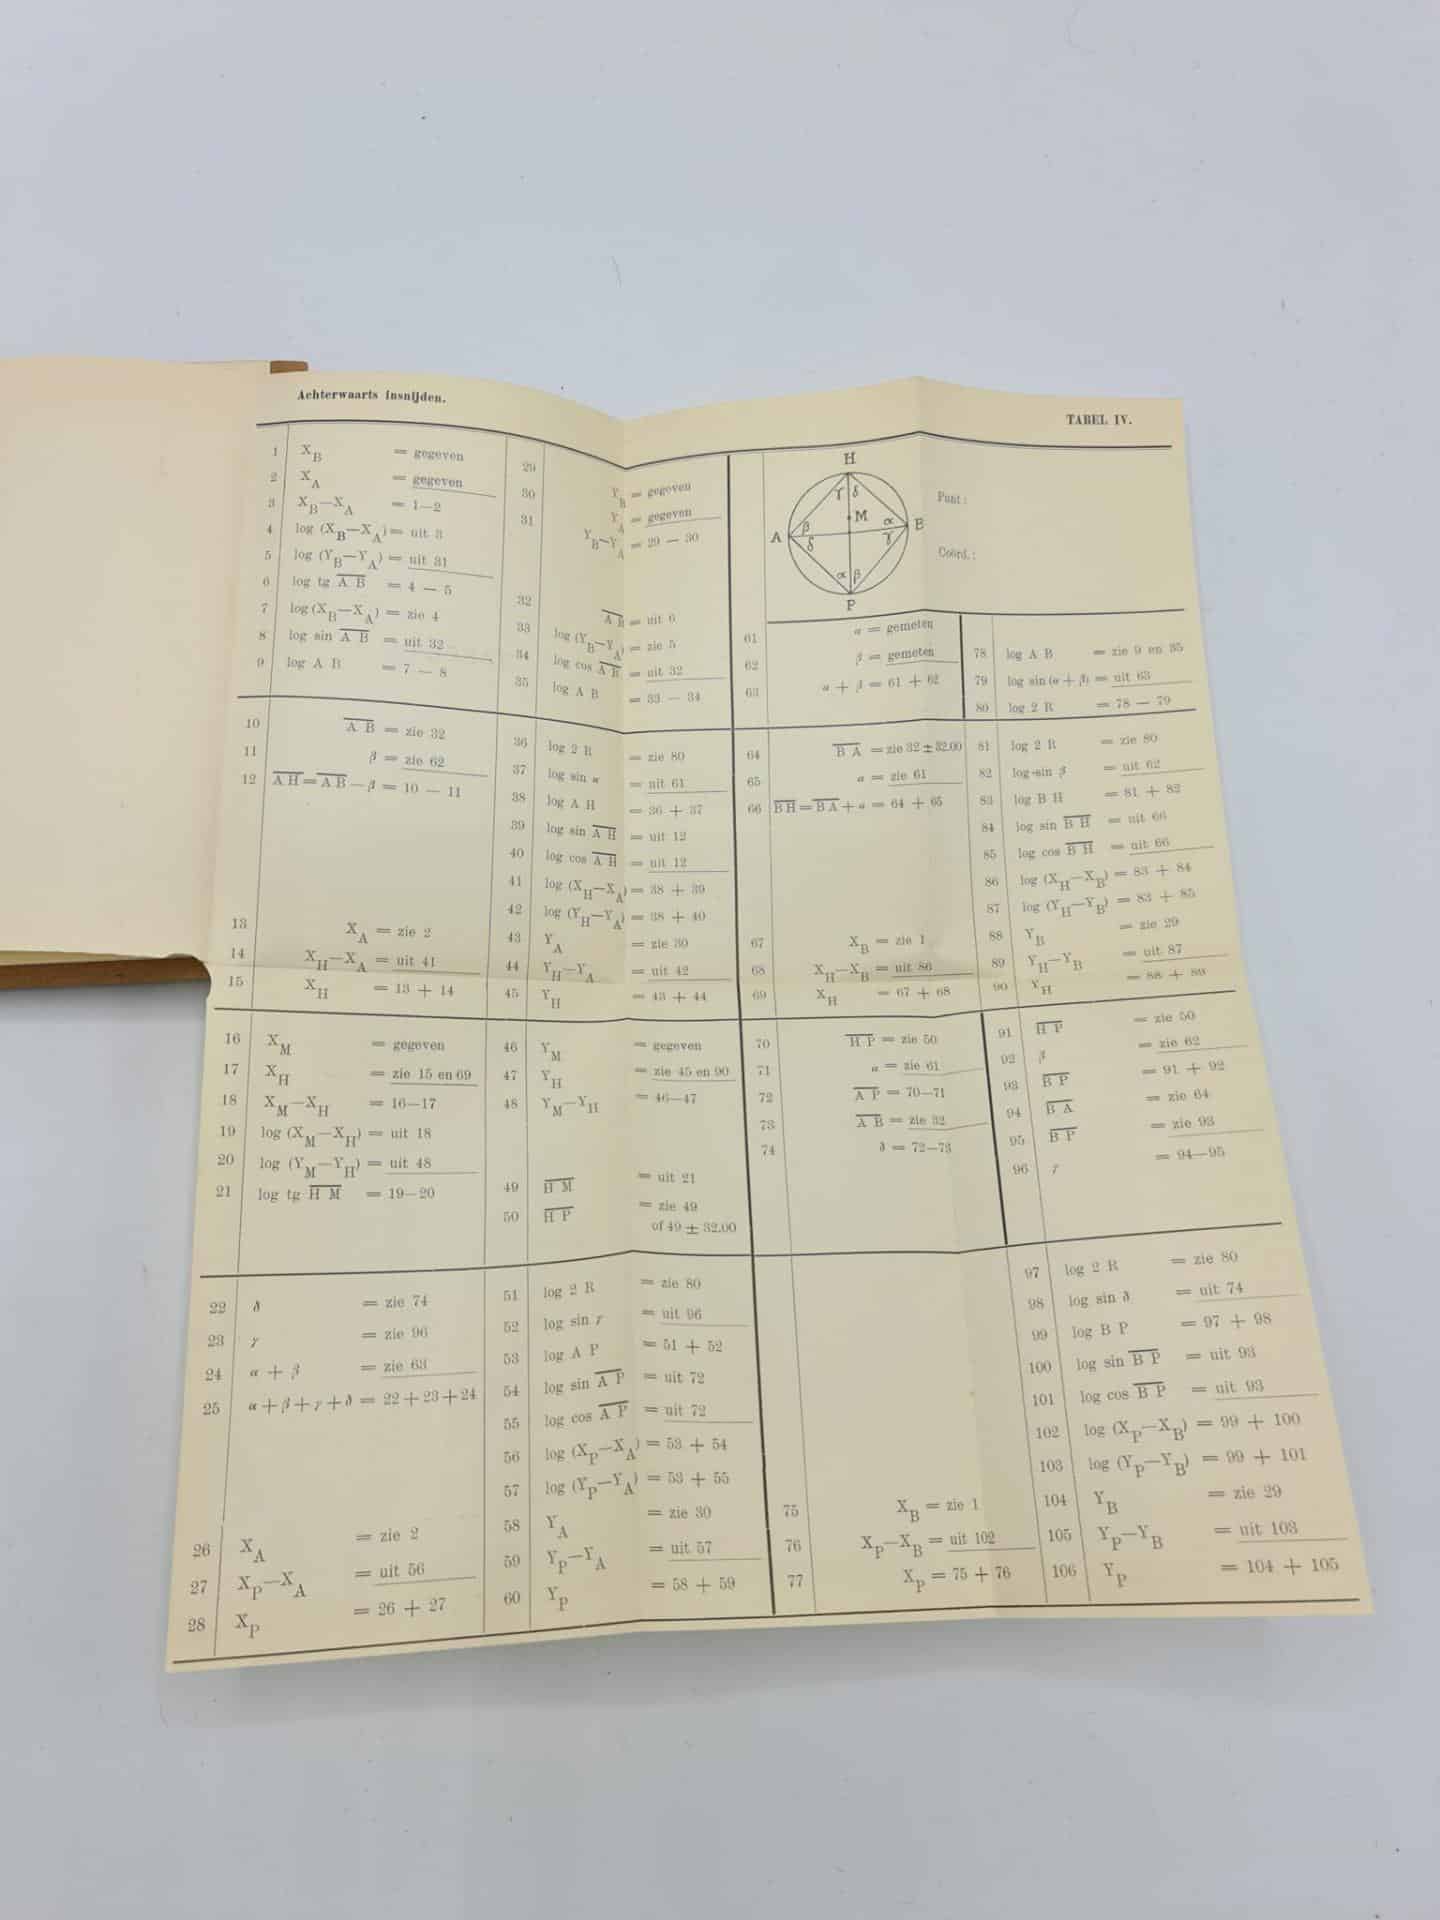 Achterwaarts insnijden.
TABEL IV.
1 X_B = gegeven
2 X_A = gegeven
3 X_B—X_A = 1—2
4 log (X_B—X_A) = uit 3
5 log (Y_B—Y_A) = uit 31
6 log tg A̅ B̅ = 4 — 5
7 log (X_B—X_A) = zie 4
8 log sin A̅ B̅ = uit 32
9 log A B = 7 — 8
29 Y_B = gegeven
30 Y_A = gegeven
31 Y_B—Y_A = 29 — 30
32 A̅ B̅ = uit 6
33 log (Y_B—Y_A) = zie 5
34 log cos A̅ B̅ = uit 32
35 log A B = 33 — 34
H
γ δ
M
A β α B
δ γ
α β
P
Punt:
Coörd.:
61 α = gemeten
62 β = gemeten
63 α + β = 61 + 62
78 log A B = zie 9 en 35
79 log sin (α + β) = uit 63
80 log 2 R = 78 — 79
10 A̅ B̅ = zie 32
11 β = zie 62
12 A̅H̅ = A̅B̅ — β = 10 — 11
13 X_A = zie 2
14 X_H—X_A = uit 41
15 X_H = 13 + 14
36 log 2 R = zie 80
37 log sin α = uit 61
38 log A H = 36 + 37
39 log sin A̅H̅ = uit 12
40 log cos A̅H̅ = uit 12
41 log (X_H—X_A) = 38 + 39
42 log (Y_H—Y_A) = 38 + 40
43 Y_A = zie 30
44 Y_H—Y_A = uit 42
45 Y_H = 43 + 44
64 B̅ A̅ = zie 32 ± 32.00
65 α = zie 61
66 B̅H̅ = B̅A̅ + α = 64 + 65
67 X_B = zie 1
68 X_H—X_B = uit 86
69 X_H = 67 + 68
81 log 2 R = zie 80
82 log sin β = uit 62
83 log B H = 81 + 82
84 log sin B̅ H̅ = uit 66
85 log cos B̅ H̅ = uit 66
86 log (X_H—X_B) = 83 + 84
87 log (Y_H—Y_B) = 83 + 85
88 Y_B = zie 29
89 Y_H—Y_B = uit 87
90 Y_H = 88 + 89
16 X_M = gegeven
17 X_H = zie 15 en 69
18 X_M—X_H = 16—17
19 log (X_M—X_H) = uit 18
20 log (Y_M—Y_H) = uit 48
21 log tg H̅ M̅ = 19—20
46 Y_M = gegeven
47 Y_H = zie 45 en 90
48 Y_M—Y_H = 46—47
49 H̅ M̅ = uit 21
50 H̅ P̅ = zie 49
of 49 ± 32.00
70 H̅ P̅ = zie 50
71 α = zie 61
72 A̅ P̅ = 70—71
73 A̅ B̅ = zie 32
74 δ = 72—73
91 H̅ P̅ = zie 50
92 β = zie 62
93 B̅ P̅ = 91 + 92
94 B̅ A̅ = zie 64
95 B̅ P̅ = zie 93
96 γ = 94—95
22 δ = zie 74
23 γ = zie 96
24 α + β = zie 63
25 α + β + γ + δ = 22 + 23 + 24
26 X_A = zie 2
27 X_P—X_A = uit 56
28 X_P = 26 + 27
51 log 2 R = zie 80
52 log sin γ = uit 96
53 log A P = 51 + 52
54 log sin A̅ P̅ = uit 72
55 log cos A̅ P̅ = uit 72
56 log (X_P—X_A) = 53 + 54
57 log (Y_P—Y_A) = 53 + 55
58 Y_A = zie 30
59 Y_P—Y_A = uit 57
60 Y_P = 58 + 59
75 X_B = zie 1
76 X_P—X_B = uit 102
77 X_P = 75 + 76
97 log 2 R = zie 80
98 log sin δ = uit 74
99 log B P = 97 + 98
100 log sin B̅ P̅ = uit 93
101 log cos B̅ P̅ = uit 93
102 log (X_P—X_B) = 99 + 100
103 log (Y_P—Y_B) = 99 + 101
104 Y_B = zie 29
105 Y_P—Y_B = uit 103
106 Y_P = 104 + 105